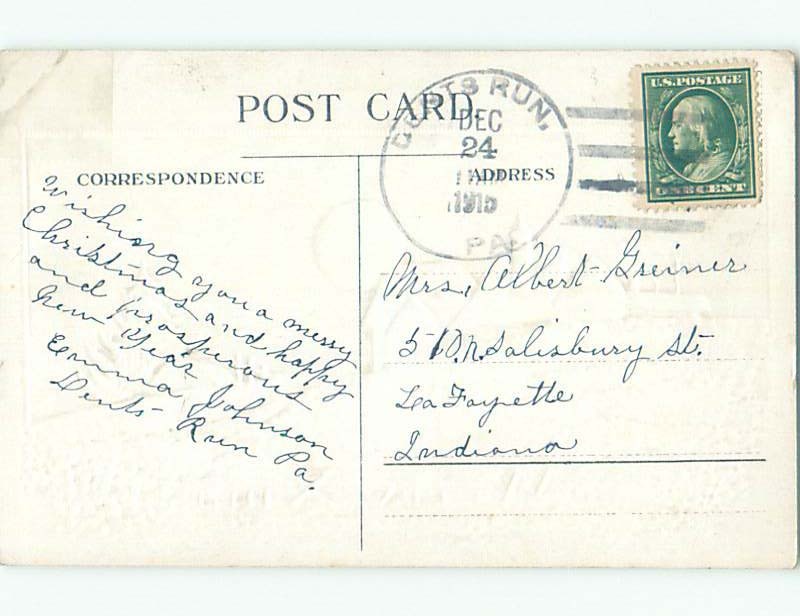 POST CARD.
DENTS RUN,
DEC
24
1915
PA.
U.S. POSTAGE
ONE CENT
CORRESPONDENCE
ADDRESS
Wishiong you a merry
Christmas and happy
and prosperous
New Year
Emma Johnson
Dents Run Pa.
Mrs. Albert Greiner
510. N. Salisbury St.
LaFayette
Indiana